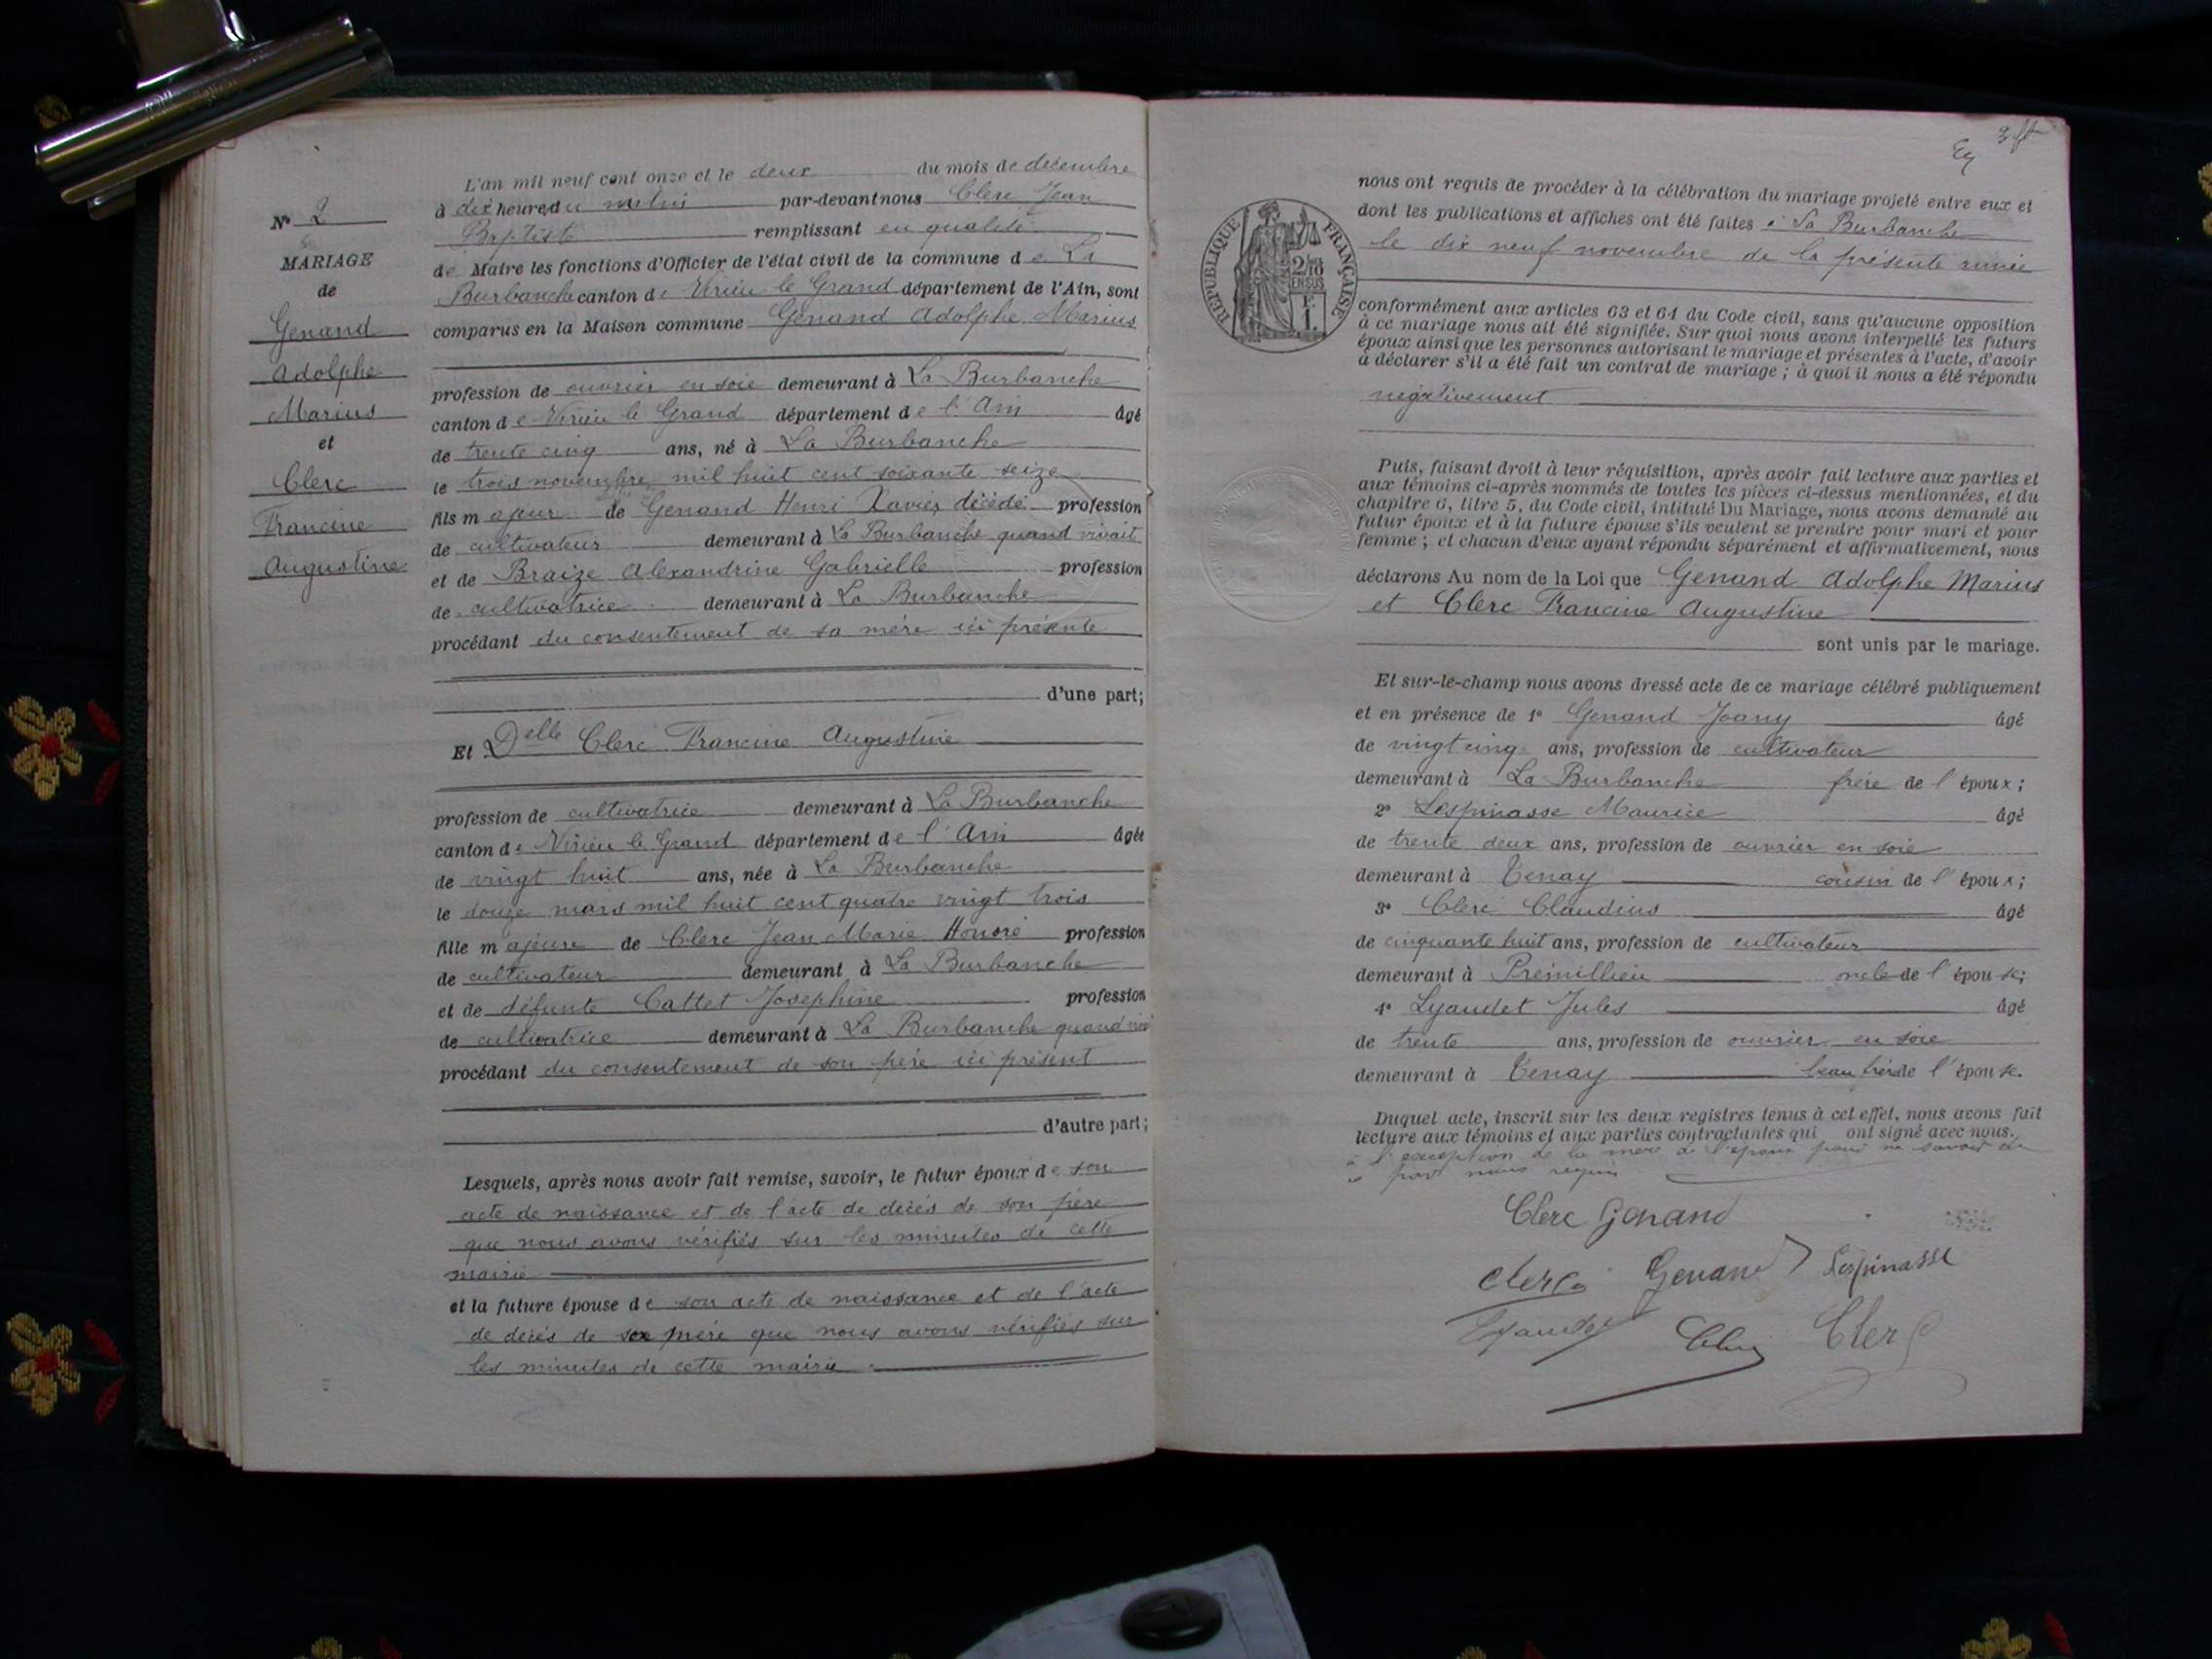 N° 2
MARIAGE
de
Genand
Adolphe
Marius
et
Clerc
Francine
Augustine
L'an mil neuf cent onze et le deux du mois de décembre
à dix heures du matin par-devant nous Clerc Jean
Baptiste remplissant en qualité
de Maire les fonctions d'Officier de l'état civil de la commune de La
Burbanche canton de Virieu le Grand département de l'Ain, sont
comparus en la Maison commune Genand Adolphe Marius
profession de ouvrier en soie demeurant à La Burbanche
canton de Virieu le Grand département de l'Ain âgé
de trente cinq ans, né à La Burbanche
le trois novembre mil huit cent soixante seize
fils majeur de Genand Henri Xavier décédé profession
de cultivateur demeurant à La Burbanche quand vivait
et de Braize Alexandrine Gabrielle profession
de cultivatrice demeurant à La Burbanche
procédant du consentement de sa mère ici présente
d'une part;
Et Delle Clerc Francine Augustine
profession de cultivatrice demeurant à La Burbanche
canton de Virieu le Grand département de l'Ain âgée
de vingt huit ans, née à La Burbanche
le douze mars mil huit cent quatre vingt trois
fille majeure de Clerc Jean Marie Honoré profession
de cultivateur demeurant à La Burbanche
et de défunte Cattet Josephine profession
de cultivatrice demeurant à La Burbanche quand
procédant du consentement de son père ici présent
d'autre part;
Lesquels, après nous avoir fait remise, savoir, le futur époux de son
acte de naissance et de l'acte de décès de son père
que nous avons vérifiés sur les minutes de cette
mairie
et la future épouse de son acte de naissance et de l'acte
de décès de sa mère que nous avons vérifiés sur
les minutes de cette mairie
nous ont requis de procéder à la célébration du mariage projeté entre eux et
dont les publications et affiches ont été faites à La Burbanche
le dix neuf novembre de la présente année
RÉPUBLIQUE FRANÇAISE
2/10
EN SUS
F.
1.
conformément aux articles 63 et 64 du Code civil, sans qu'aucune opposition
à ce mariage nous ait été signifiée. Sur quoi nous avons interpellé les futurs
époux ainsi que les personnes autorisant le mariage et présentes à l'acte, d'avoir
à déclarer s'il a été fait un contrat de mariage; à quoi il nous a été répondu
négativement
Puis, faisant droit à leur réquisition, après avoir fait lecture aux parties et
aux témoins ci-après nommés de toutes les pièces ci-dessus mentionnées, et du
chapitre 6, titre 5, du Code civil, intitulé Du Mariage, nous avons demandé au
futur époux et à la future épouse s'ils veulent se prendre pour mari et pour
femme; et chacun d'eux ayant répondu séparément et affirmativement, nous
déclarons Au nom de la Loi que Genand Adolphe Marius
et Clerc Francine Augustine
sont unis par le mariage.
Et sur-le-champ nous avons dressé acte de ce mariage célébré publiquement
et en présence de 1° Genand Joany âgé
de vingt cinq ans, profession de cultivateur
demeurant à La Burbanche frère de l'époux;
2° Lespinasse Maurice âgé
de trente deux ans, profession de ouvrier en soie
demeurant à Tenay cousin de l'époux;
3° Clerc Claudius âgé
de cinquante huit ans, profession de cultivateur
demeurant à Prémillieu oncle de l'épouse;
4° Lyaudet Jules âgé
de trente ans, profession de ouvrier en soie
demeurant à Tenay beau frère de l'épouse.
Duquel acte, inscrit sur les deux registres tenus à cet effet, nous avons fait
lecture aux témoins et aux parties contractantes qui ont signé avec nous.
à l'exception de la mère de l'époux pour ne savoir de
ce par nous requis
Clerc Genand
Clerc Genand Lespinasse
Lyaudet Clerc Clerc